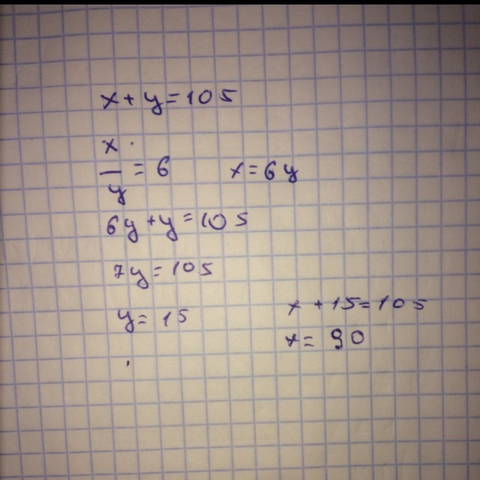 x+y=105
x/y=6 x=6y
6y+y=105
7y=105
y=15 x+15=105
x=90